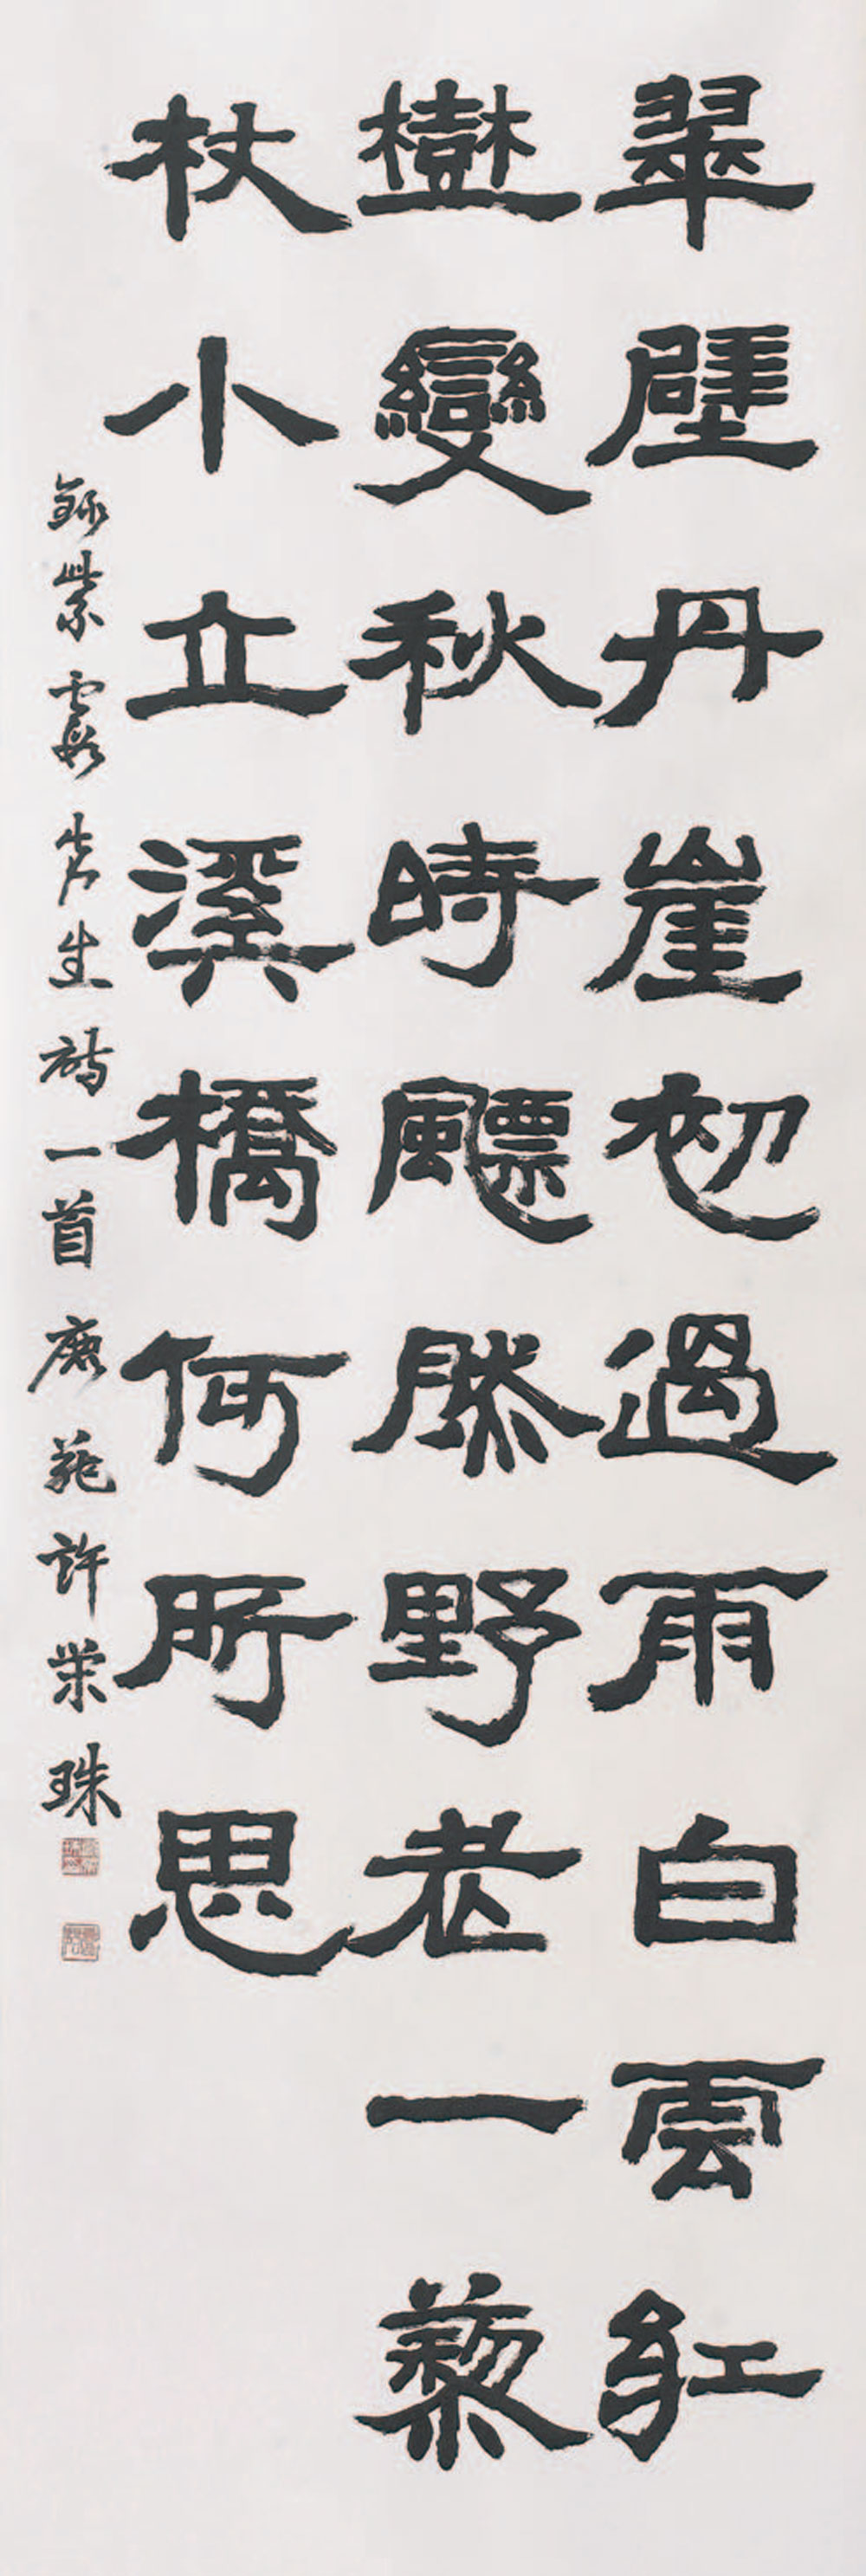 翠壁丹崖初過雨白雲紅
樹變秋時飄然野老一藜
杖小立溪橋何所思
錄紫霞先生詩一首鹿苑許榮珠